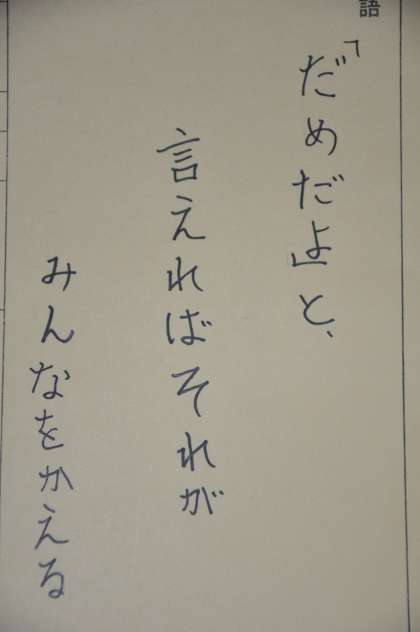 語
「だめだよ」と、
言えればそれが
みんなをかえる